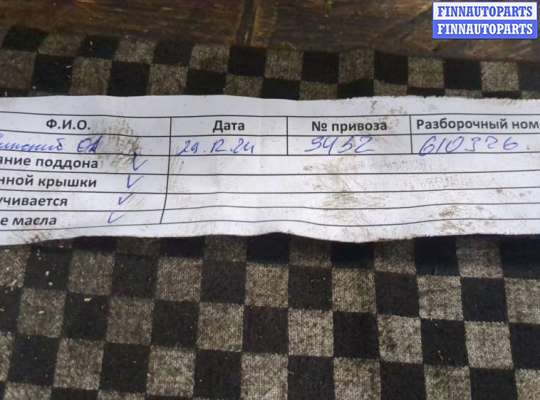 FINNAUTOPARTS
FINNAUTOPARTS
Ф.И.О. Дата № привоза Разборочный ном
29.12.24 3432 610326
яние поддона ✓
нной крышки ✓
учивается ✓
е масла ✓